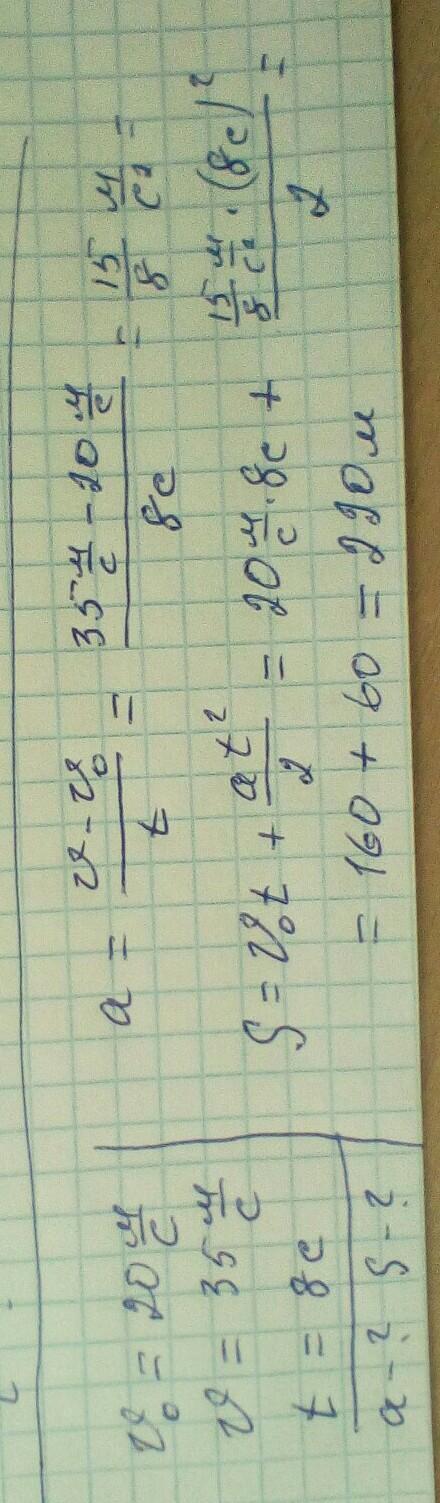 v₀ = 20 м/с
v = 35 м/с
t = 8с
a - ? S - ?
a = (v - v₀)/t = (35 м/с - 20 м/с)/8с = 15/8 м/с² =
S = v₀t + at²/2 = 20 м/с · 8с + (15/8 м/с² · (8с)²)/2 =
= 160 + 60 = 220м